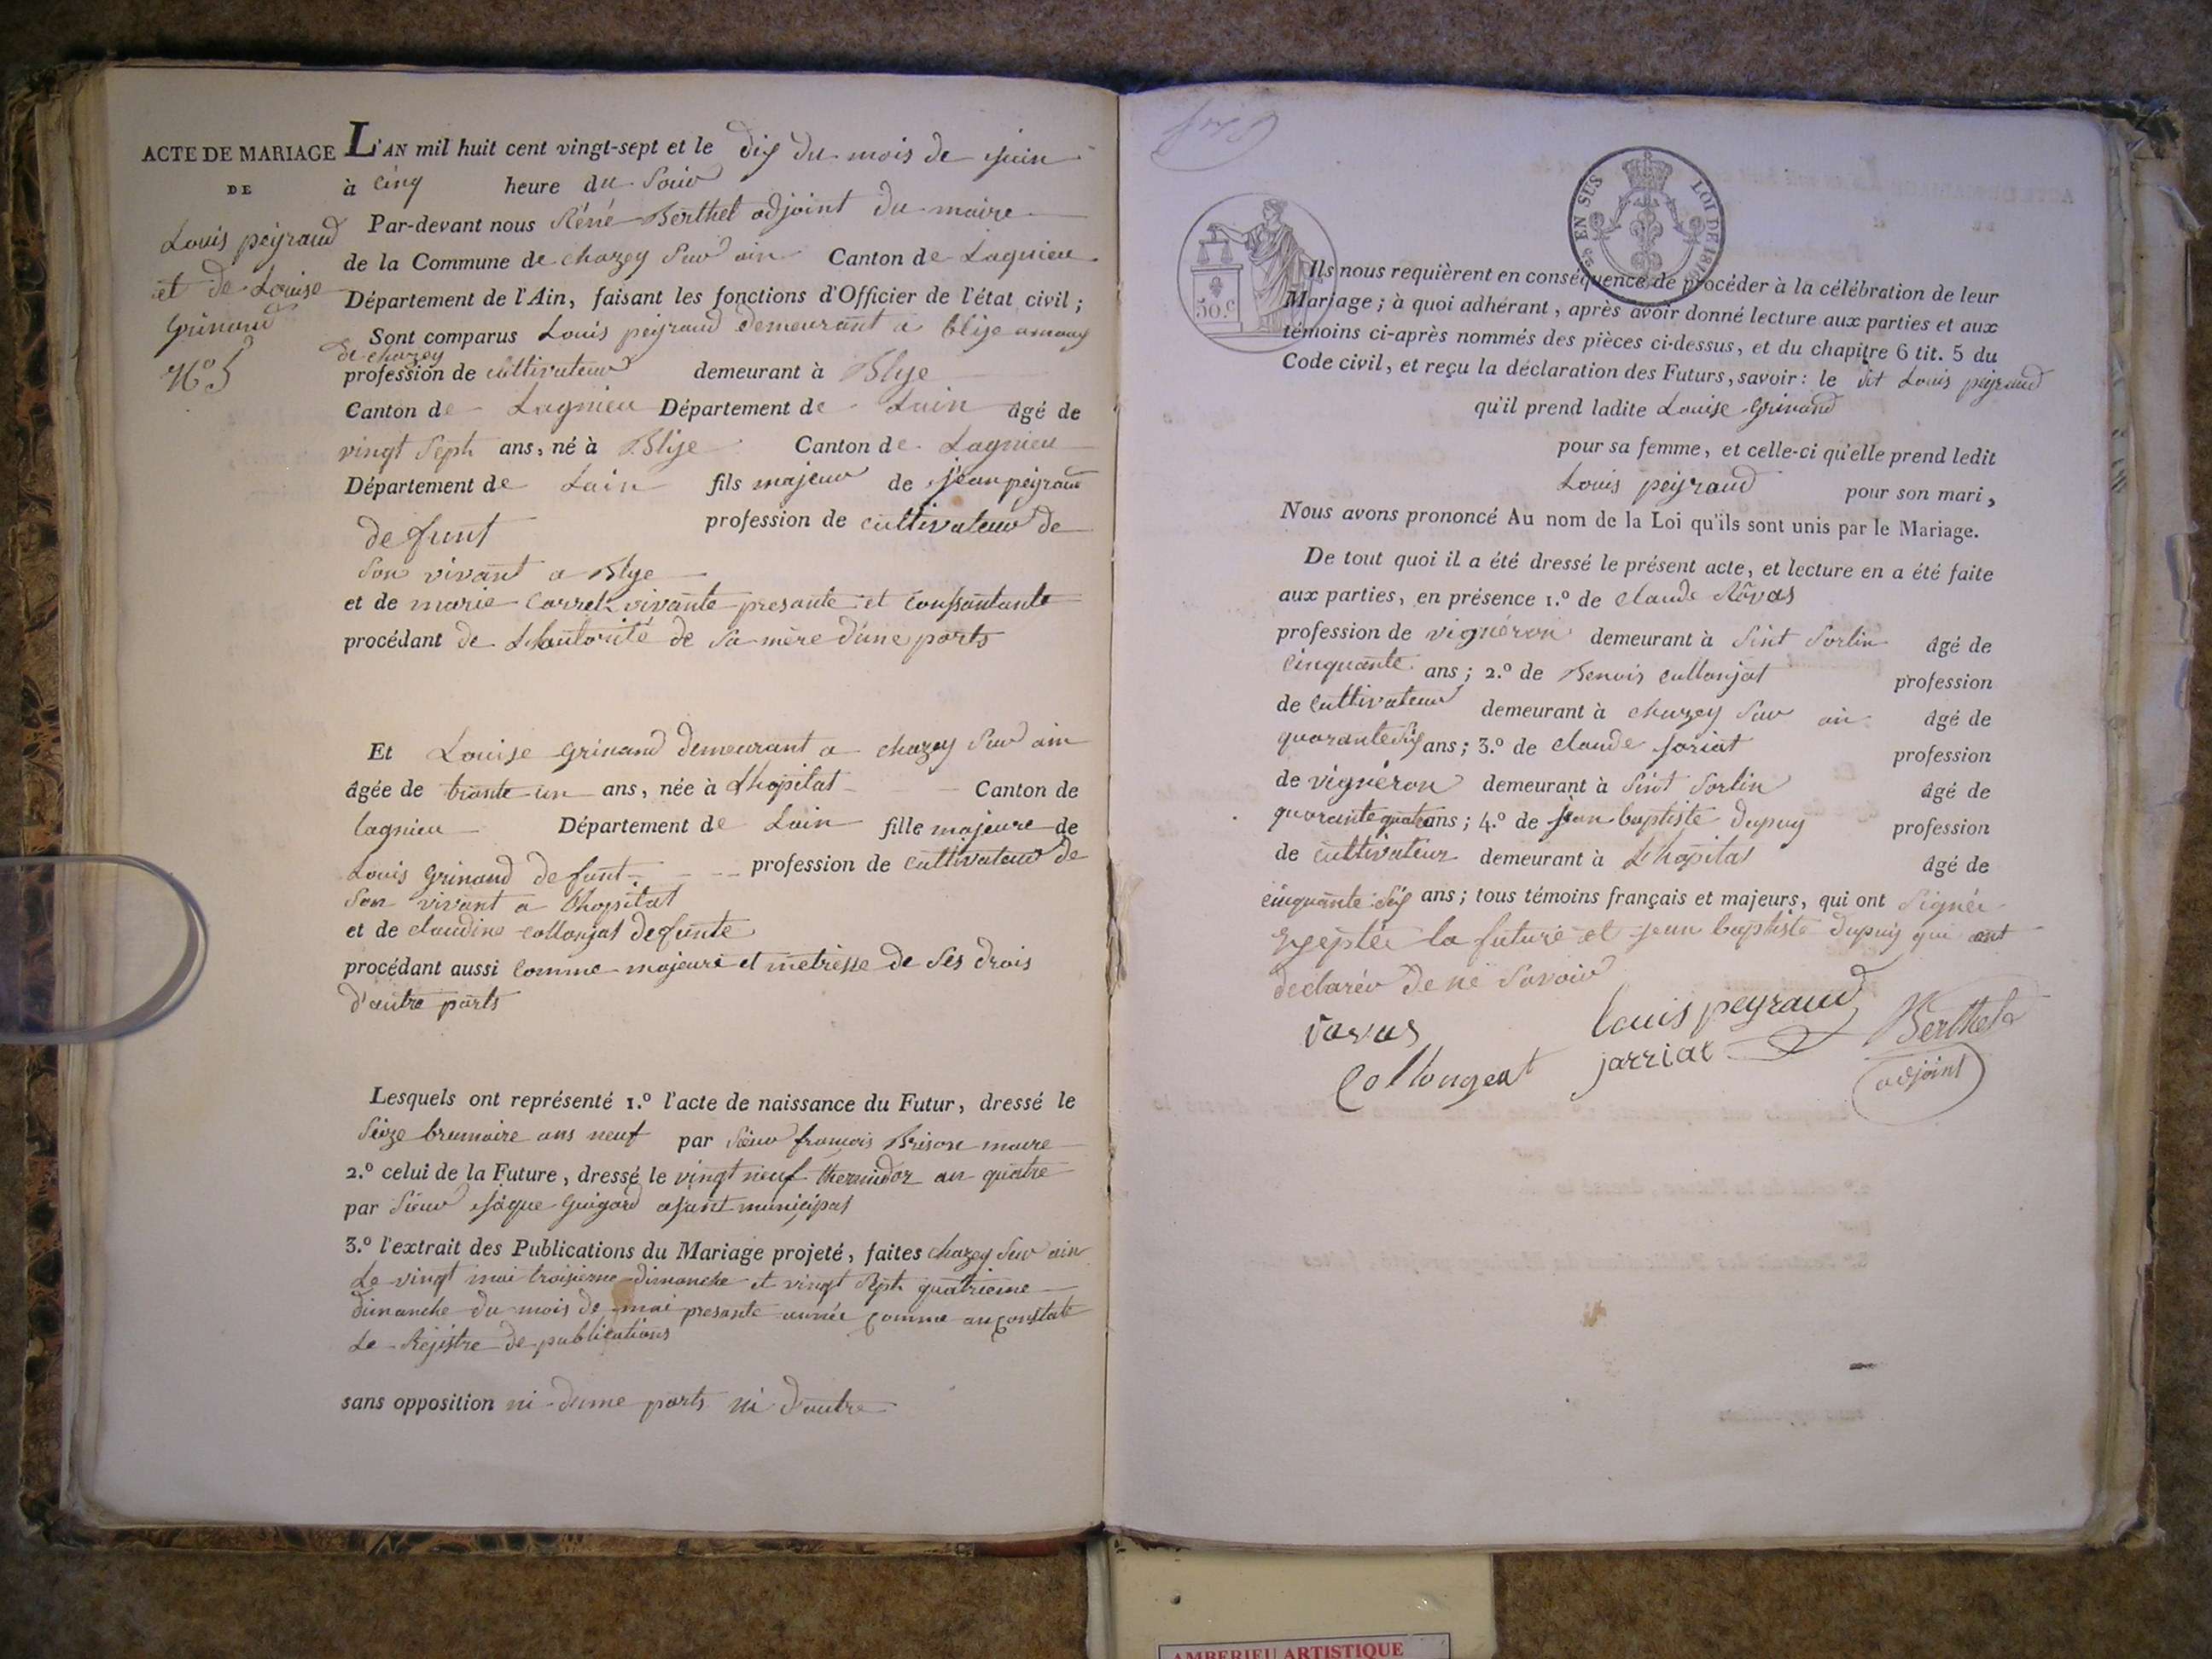 ACTE DE MARIAGE
DE
Louis peyraud
et de Louise
Grinand
N.o 5
L'AN mil huit cent vingt-sept et le dix du mois de juin
à cinq heure du soir
Par-devant nous Réné Berthet adjoint du maire
de la Commune de chazey sur ain Canton de Lagnieu
Département de l'Ain, faisant les fonctions d'Officier de l'état civil ;
Sont comparus Louis peyraud demeurant a blye
de chazey
profession de cultivateur demeurant à Blye
Canton de Lagnieu Département de Lain âgé de
vingt sept ans, né à Blye Canton de Lagnieu
Département de Lain fils majeur de jean peyraud
defunt profession de cultivateur de
son vivant a Blye
et de marie Carret vivante presante et consantante
procédant de Lhautorité de sa mère d'une parts
Et Louise Grinand demeurant a chazey sur ain
âgée de trante un ans, née à Lhopital Canton de
lagnieu Département de Lain fille majeure de
Louis Grinand defunt profession de cultivateur de
son vivant a Lhopital
et de claudine collonjat defunte
procédant aussi comme majeure et metresse de ses drois
d'autre parts
Lesquels ont représenté 1.º l'acte de naissance du Futur, dressé le
seize brumaire ans neuf par sieur françois Brison maire
2.º celui de la Future, dressé le vingt neuf thermidor an quatre
par sieur jaque Guigard ajant municipal
3.º l'extrait des Publications du Mariage projeté, faites chazey sur ain
Le vingt mai troisieme dimanche et vingt sept quatrieme
dimanche du mois de mai presante année comme an constate
Le Rejistre de publications
sans opposition ni dune parts ni d'autre
50.c
EN SUS LOI DE 1816
Ils nous requièrent en conséquence de procéder à la célébration de leur
Mariage ; à quoi adhérant, après avoir donné lecture aux parties et aux
témoins ci-après nommés des pièces ci-dessus, et du chapitre 6 tit. 5 du
Code civil, et reçu la déclaration des Futurs, savoir : le dit Louis peyraud
qu'il prend ladite Louise Grinand
pour sa femme, et celle-ci qu'elle prend ledit
Louis peyraud pour son mari,
Nous avons prononcé Au nom de la Loi qu'ils sont unis par le Mariage.
De tout quoi il a été dressé le présent acte, et lecture en a été faite
aux parties, en présence 1.º de claude
profession de vignéron demeurant à sint sorlin âgé de
cinquante ans ; 2.º de Benois collonjat profession
de cultivateur demeurant à chazey sur ain âgé de
quarante six ans ; 3.º de claude jariat profession
de vignéron demeurant à sint sorlin âgé de
quarante quatre ans ; 4.º de jean baptiste dupuy profession
de cultivateur demeurant à Lhopital âgé de
cinquante six ans ; tous témoins français et majeurs, qui ont signér
exeptér la future et jean baptiste dupuy qui ont
declarér de ne savoir
vavas louis peyraud Berthet
Collongeat jarriat adjoint
AMBERIEU ARTISTIQUE